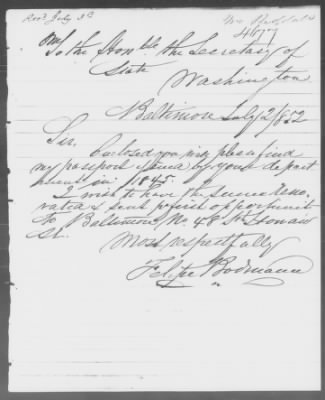 Recd July 3d
4677
To the Honble the Secretary of
State
Washington
Baltimore July 2/852
Sir,
Enclosed you will please find
my passport issued by your depart
ment in 1845.
I wish to have the same reno-
vated & sent per first opportunity
to Baltimore No. 48 St.
St.
Most respectfully
Felipe Bodmann